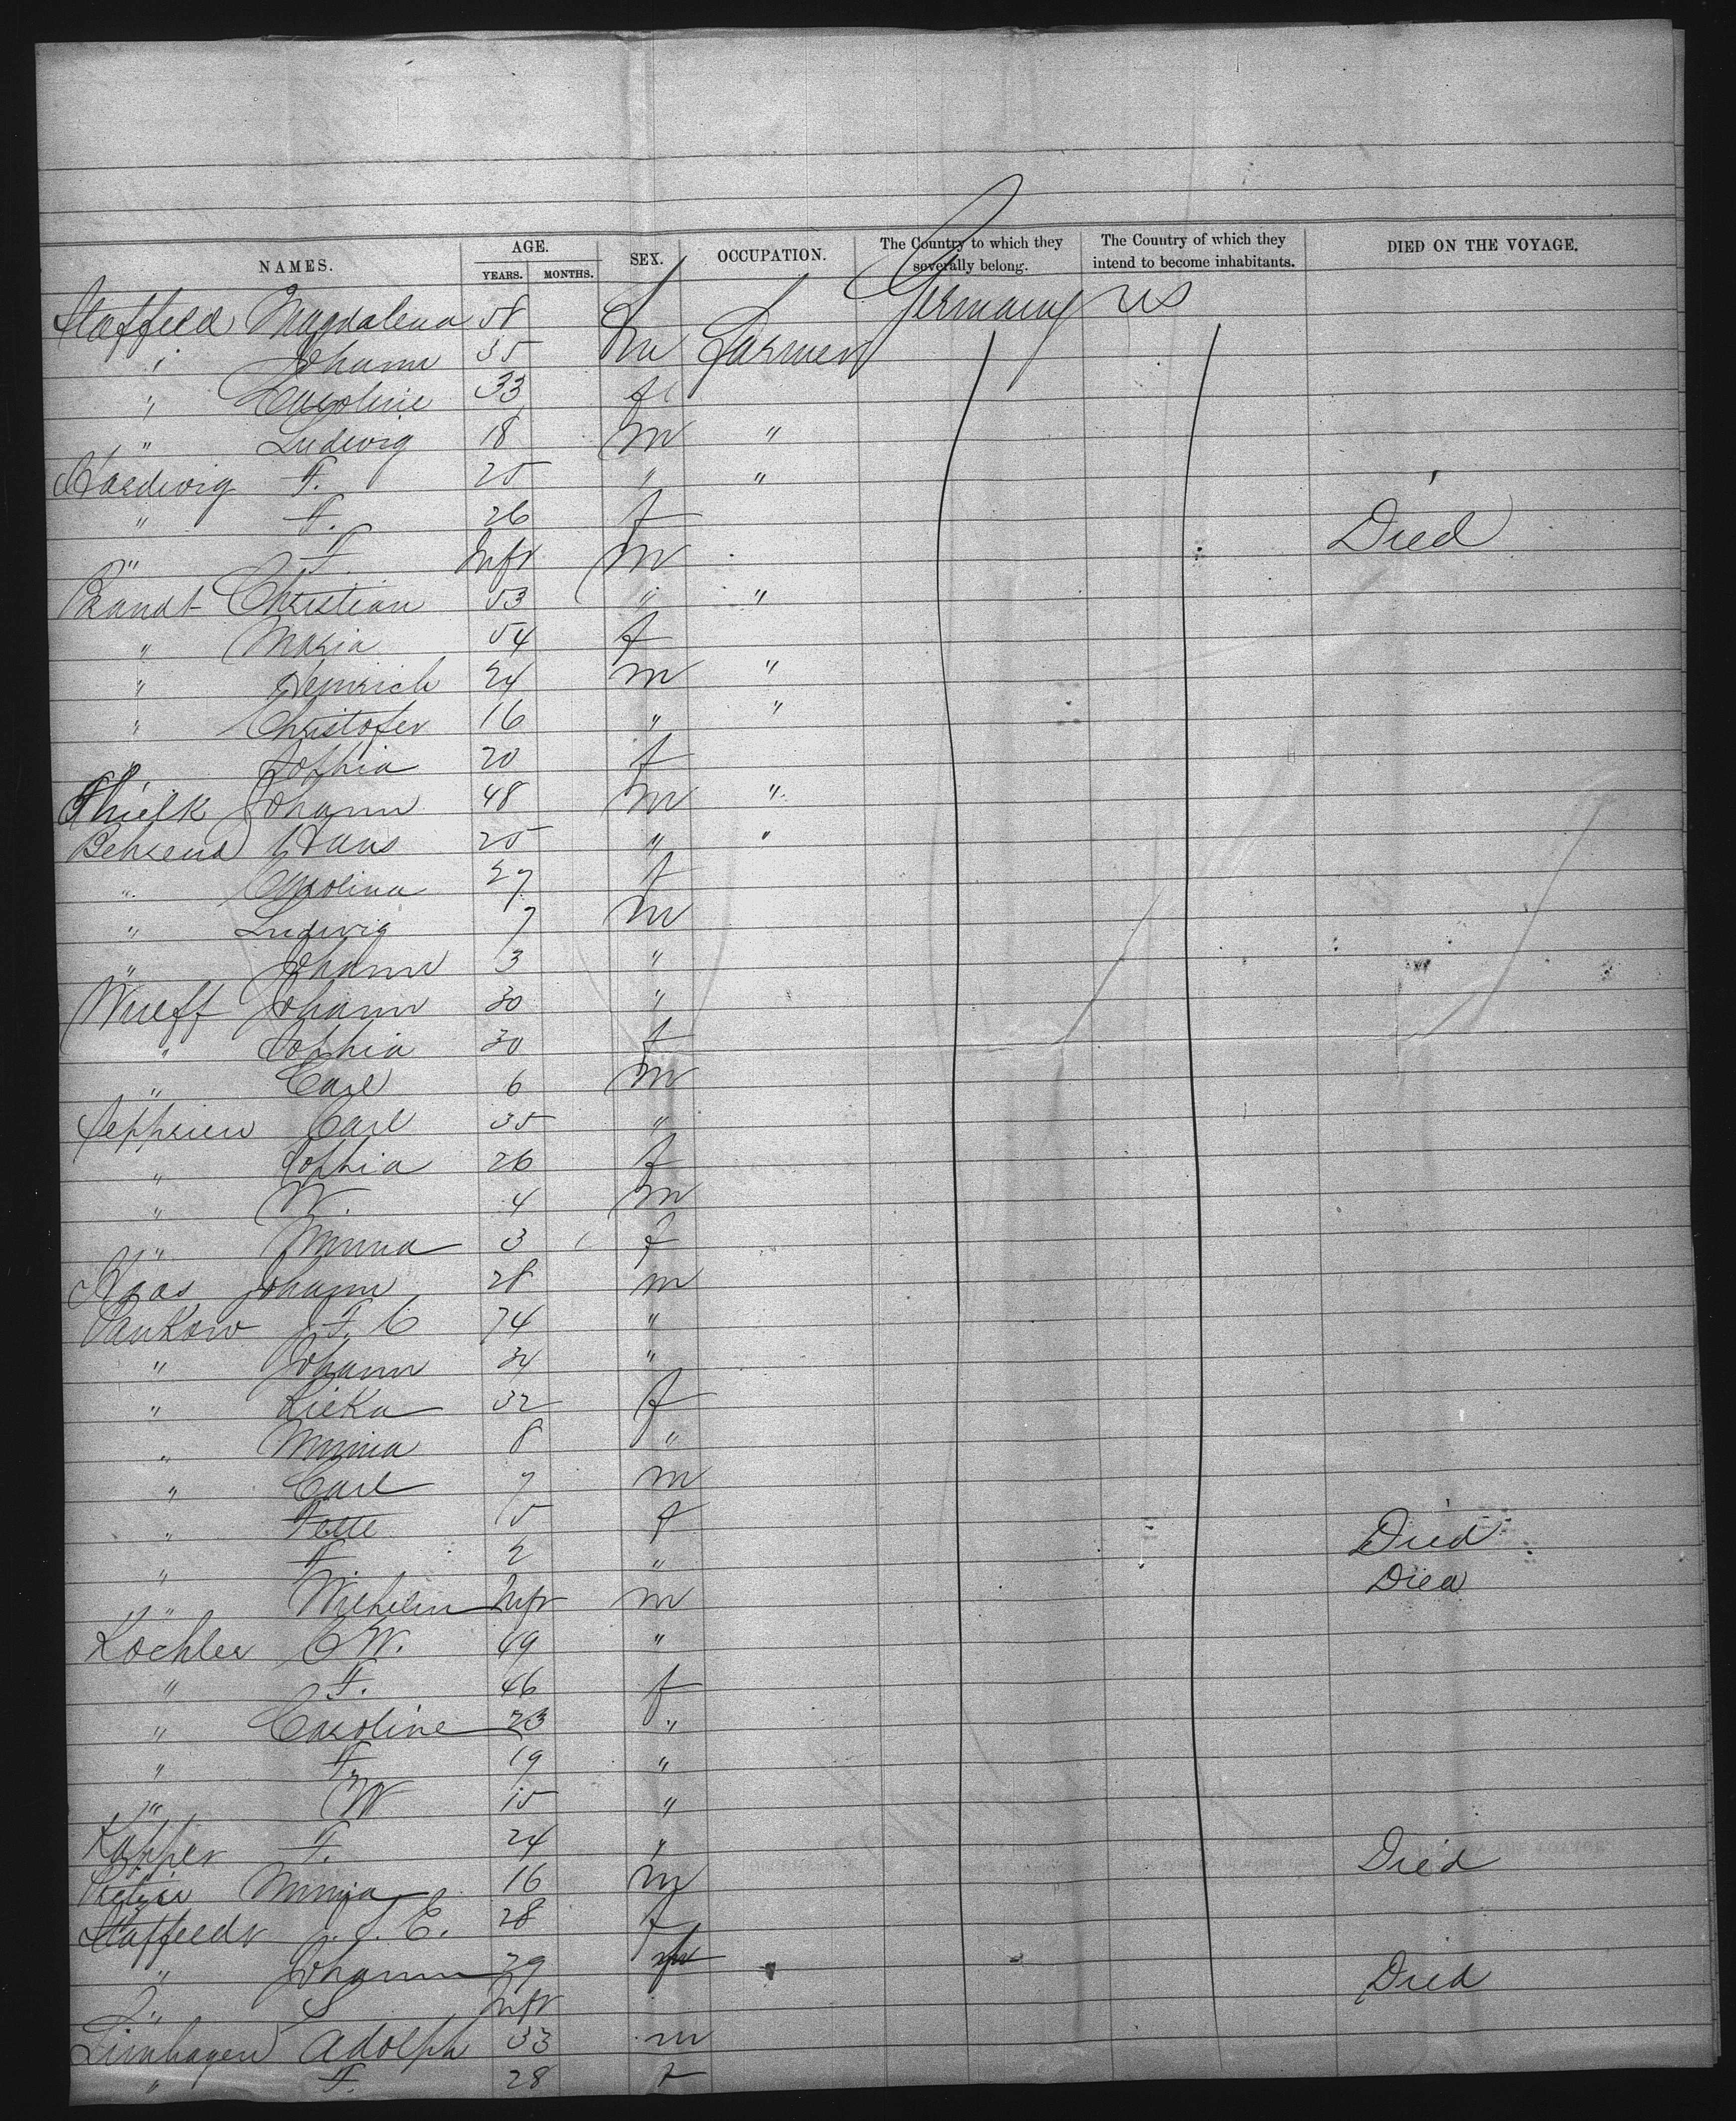 NAMES. AGE. YEARS. MONTHS. SEX. OCCUPATION. The Country to which they severally belong. The Country of which they intend to become inhabitants. DIED ON THE VOYAGE.
Magdalena 58 f Germany US
" Johann 35 m Farmer
" Caroline 33 f
" Ludwig 18 m "
Hardwig F. 25 " "
" F. 26 f
" F Inft m Died
Brandt Christian 53 " "
" Maria 54 f
" Heinrich 24 m "
" Christofer 16 " "
" Sophia 20 f
Thielk Johann 48 m "
Behrend Hans 25 " "
" Carolina 27 f
" Ludwig 7 m
" Johann 3 "
Wulff Johann 30 "
" Sophia 30 f
" Carl 6 m
Carl 35 "
" Sophia 26 f
" W. 4 m
" Minna 3 f
Haas Johann 28 m
Pankow F. C 74 "
" Johann 34 "
" Rieka 32 f
" Minna 8 "
" Carl 7 m
" 5 f
" F 2 " Died
" Wilhelm Inft m Died
Koehler C W. 49 "
" F. 46 f
" Caroline 23 "
" F. 19 "
" W 15 "
F. 24 "
Minna 16 m Died
28 f
" Johann 29
" S Inft Died
Adolph 33 m
" F. 28 f